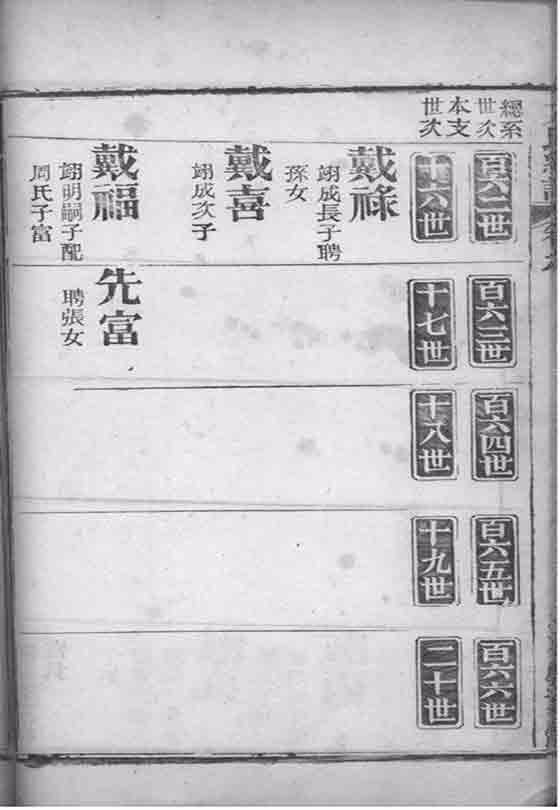 總系
世次
本支
世次
百六二世
十六世
戴祿
翊成長子聘
孫女
戴喜
翊成次子
戴福
翊明嗣子配
周氏子富
百六三世
十七世
先富
聘張女
百六四世
十八世
百六五世
十九世
百六六世
二十世